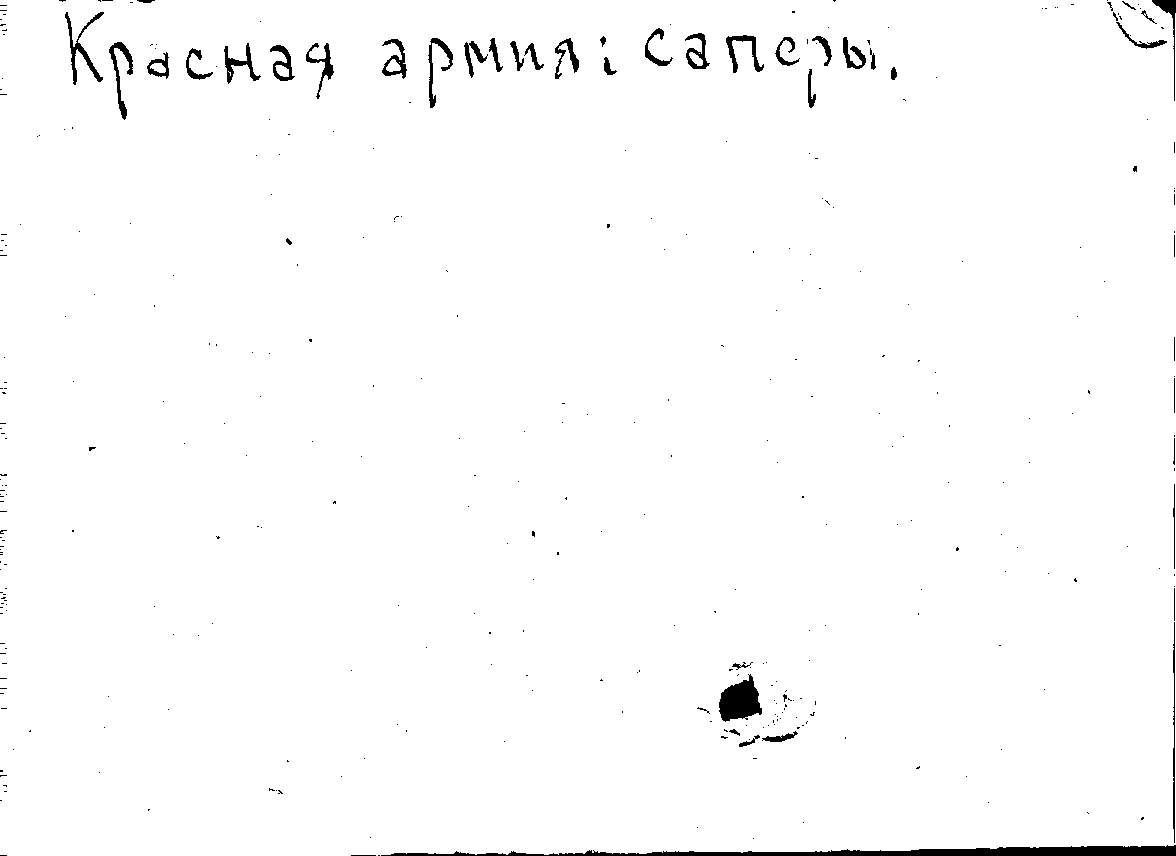 Красная армия: саперы.